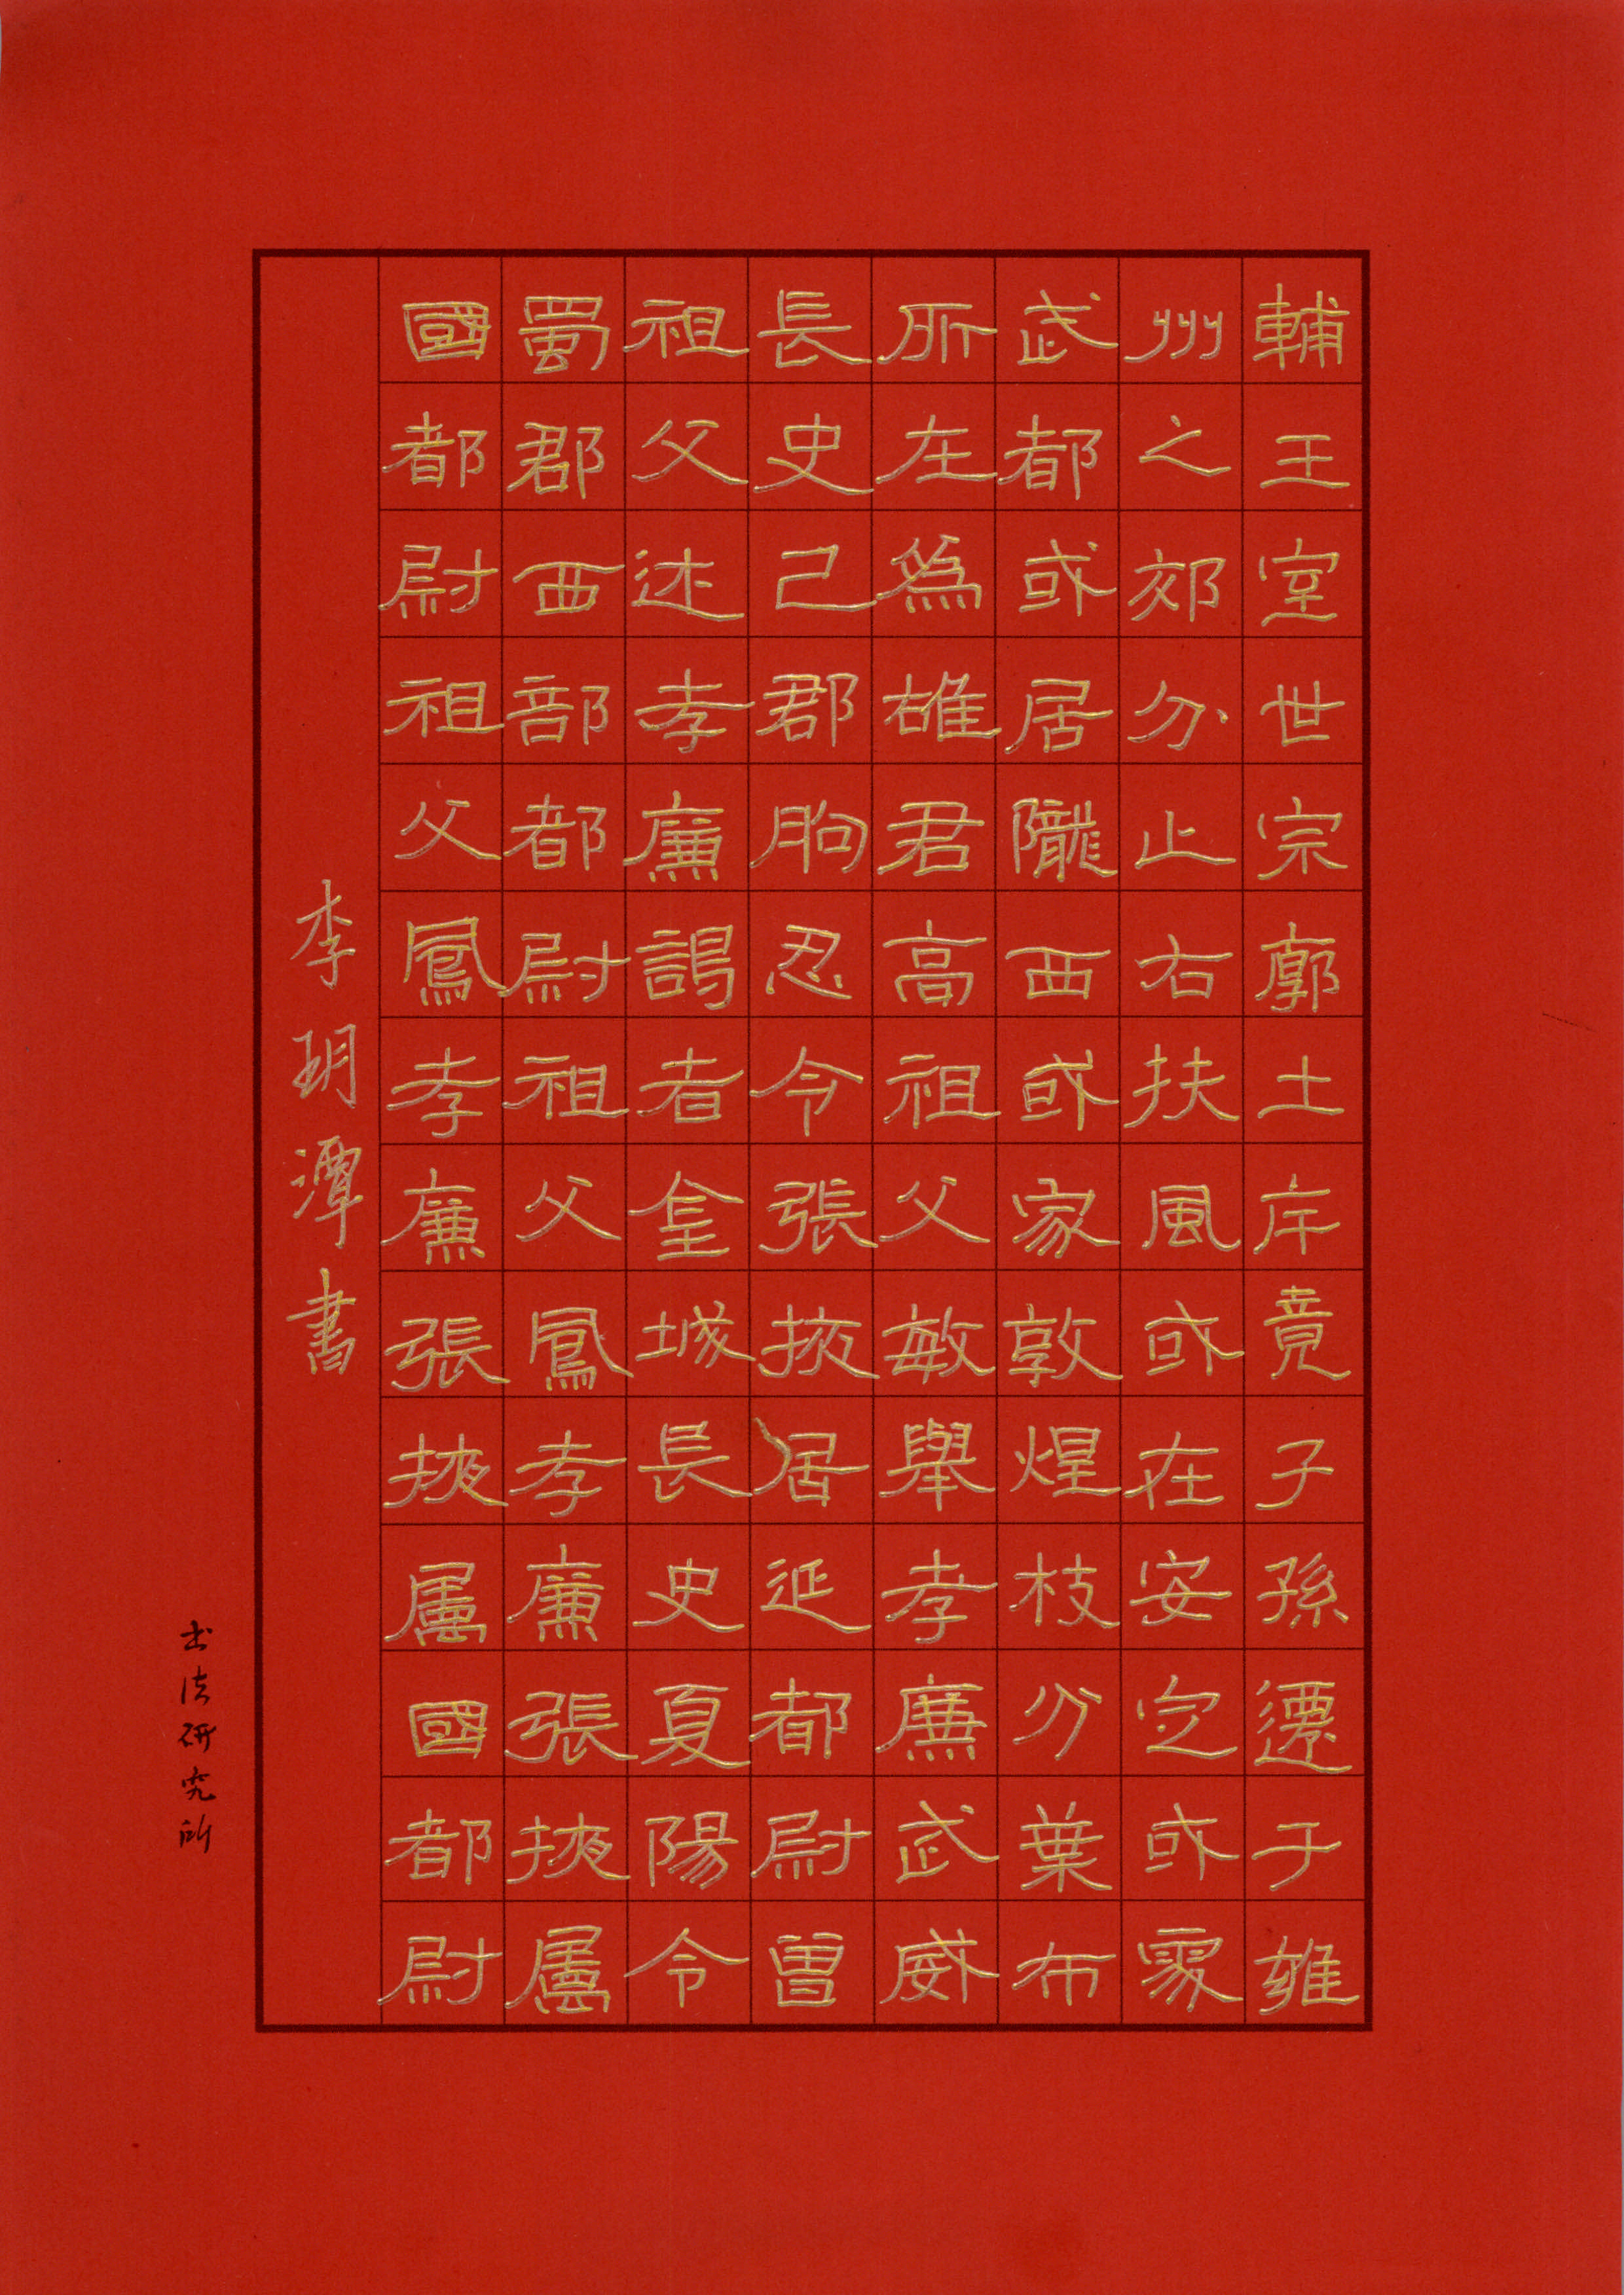 輔王室世宗廓土斥竟子孫遷于雍
州之郊分止右扶風或在安定或處
武都或居隴西或家敦煌枝分葉布
所在為雄君高祖父敏舉孝廉武威
長史巴郡朐忍令張掖居延都尉曾
祖父述孝廉謁者金城長史夏陽令
蜀郡西部都尉祖父鳳孝廉張掖屬
國都尉祖父鳳孝廉張掖屬國都尉
李玥潭書
书法研究所